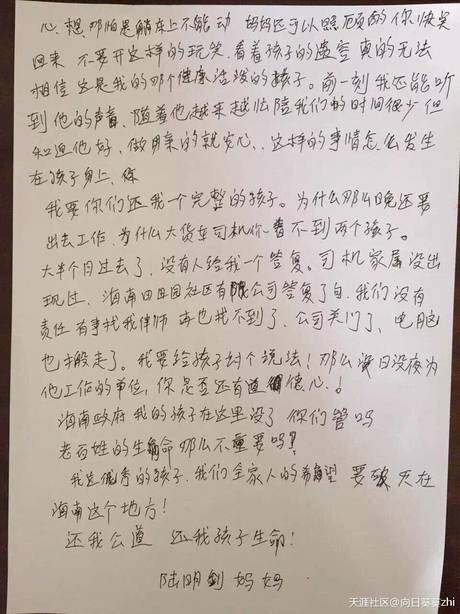 心,想那怕是躺床上不能动 妈妈还可以照顾的你快笑
回来 不要开这样的玩笑.看着孩子的遗容 真的无法
相信 这是我的那个健康活泼的孩子。前一刻我还能听
到他的声音、随着他越来越忙陪我们的时间很少但
知道他好、做母亲的就安心、、这样的事情怎么发生
在孩子身上、你
我要你们还我一个完整的孩子。为什么那么晚还要
出去工作、为什么大货车司机你看不到两个孩子。
大半个月过去了、没有人给我一个答复。司机家属没出
现过、海南田田园社区有限公司答复了句、我们没有
责任 有事找我律师 再也找不到了、公司关门了、电脑
也搬走了。我要给孩子讨个说法!那么没日没夜为
他工作的单位,你是否还有道德心.!
海南政府 我的孩子在这里没了 你们管吗
老百姓的生命那么不重要吗?
我这优秀的孩子.我们全家人的希望 要破灭在
海南这个地方!
还我公道 还我孩子生命!
陆明剑 妈妈
天涯社区@向日葵葵zhi